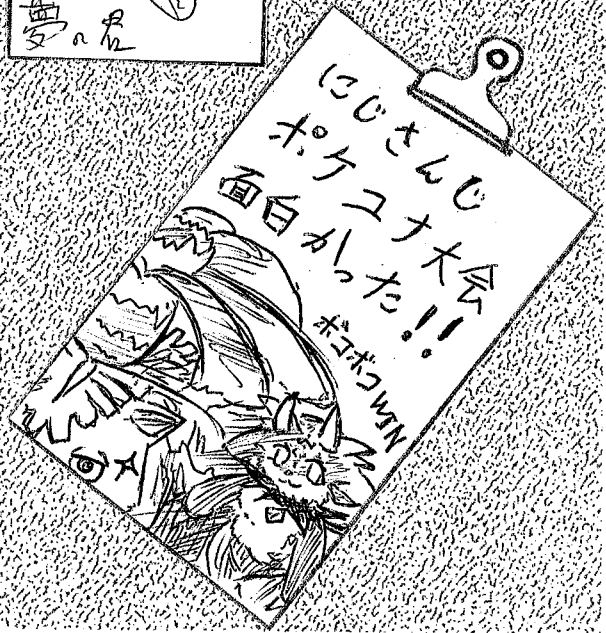 夢の君
にじさんじ
ポケユナ大会
面白かった!!
ボコボコWIN